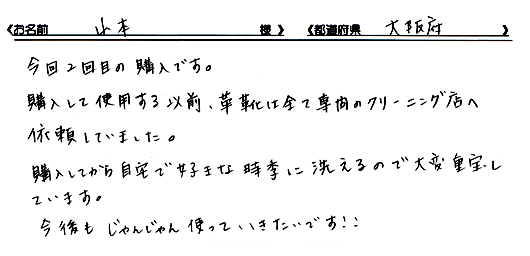 《お名前 山本 様》 《都道府県 大阪府 》
今回2回目の購入です。
購入して使用する以前、革靴は全て専門のクリーニング店へ
依頼していました。
購入してから自宅で好きな時季に洗えるので大変重宝し
ています。
今後もじゃんじゃん使っていきたいです!!